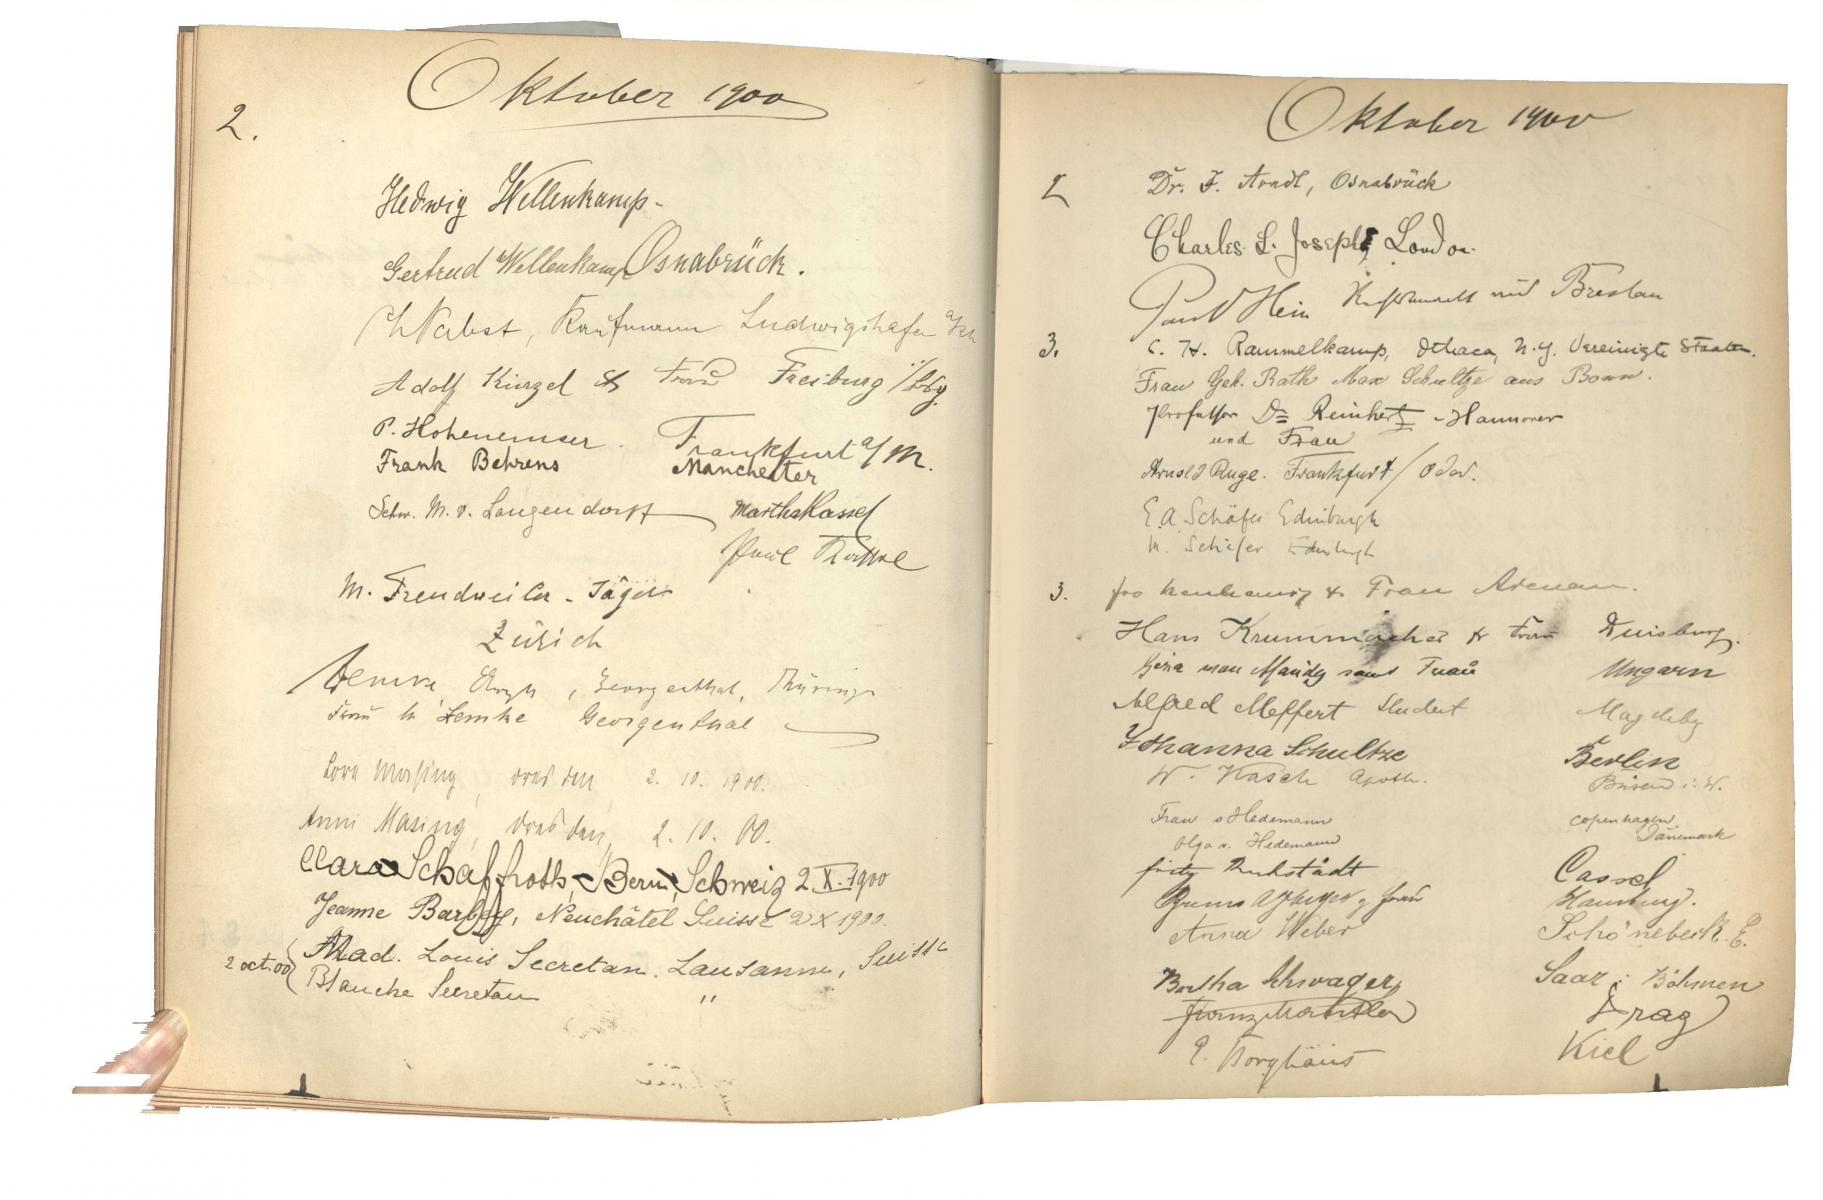 Oktober 1900
2.
Hedwig Wellenkamp -
Gertrud Wellenkamp Osnabrück.
Pabst, Kaufmann Ludwigshafen a/Rh
Adolf Kinzel & Frau Freiburg i/Bdg.
P. Hohenemser. Frankfurt a/M.
Frank Behrens Manchester
Schw. M. v. Langendorff Martha Kassel
Paul Kassel
M. Freudweiler - Jäger
Zürich
Lemke, Georgenthal, Thüringen
Frau M Lemke Georgenthal
Lora Masing, Dresden, 2. 10. 1900.
Anni Masing, Dresden, 2. 10. 00.
Clara Schaffroth, Bern, Schweiz 2 X. 1900
Jeanne Barbey, Neuchâtel Suisse 2 X 1900.
2 oct. 00 Mad. Louis Secretan. Lausanne, Suisse
Blanche Secretan "
Oktober 1900
2 Dr. F. Arndt, Osnabrück
Charles L. Joseph, London
Paul Hein Breslau
3. C. H. Rammelkamp, Ithaca, N.Y. Vereinigte Staaten.
Frau Geh. Rath Max Schultze aus Bonn.
Professor Dr Reinhertz - Hannover
und Frau
Arnold Ruge. Frankfurt / Oder.
E. A. Schäfer Edinburgh
M. Schäfer Edinburgh
3. & Frau
Hans Krummacher & Frau Duisburg.
Géza von Mandy samt Frau Ungarn
Alfred Meffert Student Magdebg
Johanna Schultze Berlin
W. Kasch Apoth. Büren i. W.
Frau v Hedemann Copenhagen
Olga v. Hedemann Dänemark
Fritz Ruhstädt Cassel
Frau Hamburg.
Anna Weber Schönebeck. E.
Bertha Schwager, Saar i Böhmen
Prag
P. Borghäus Kiel